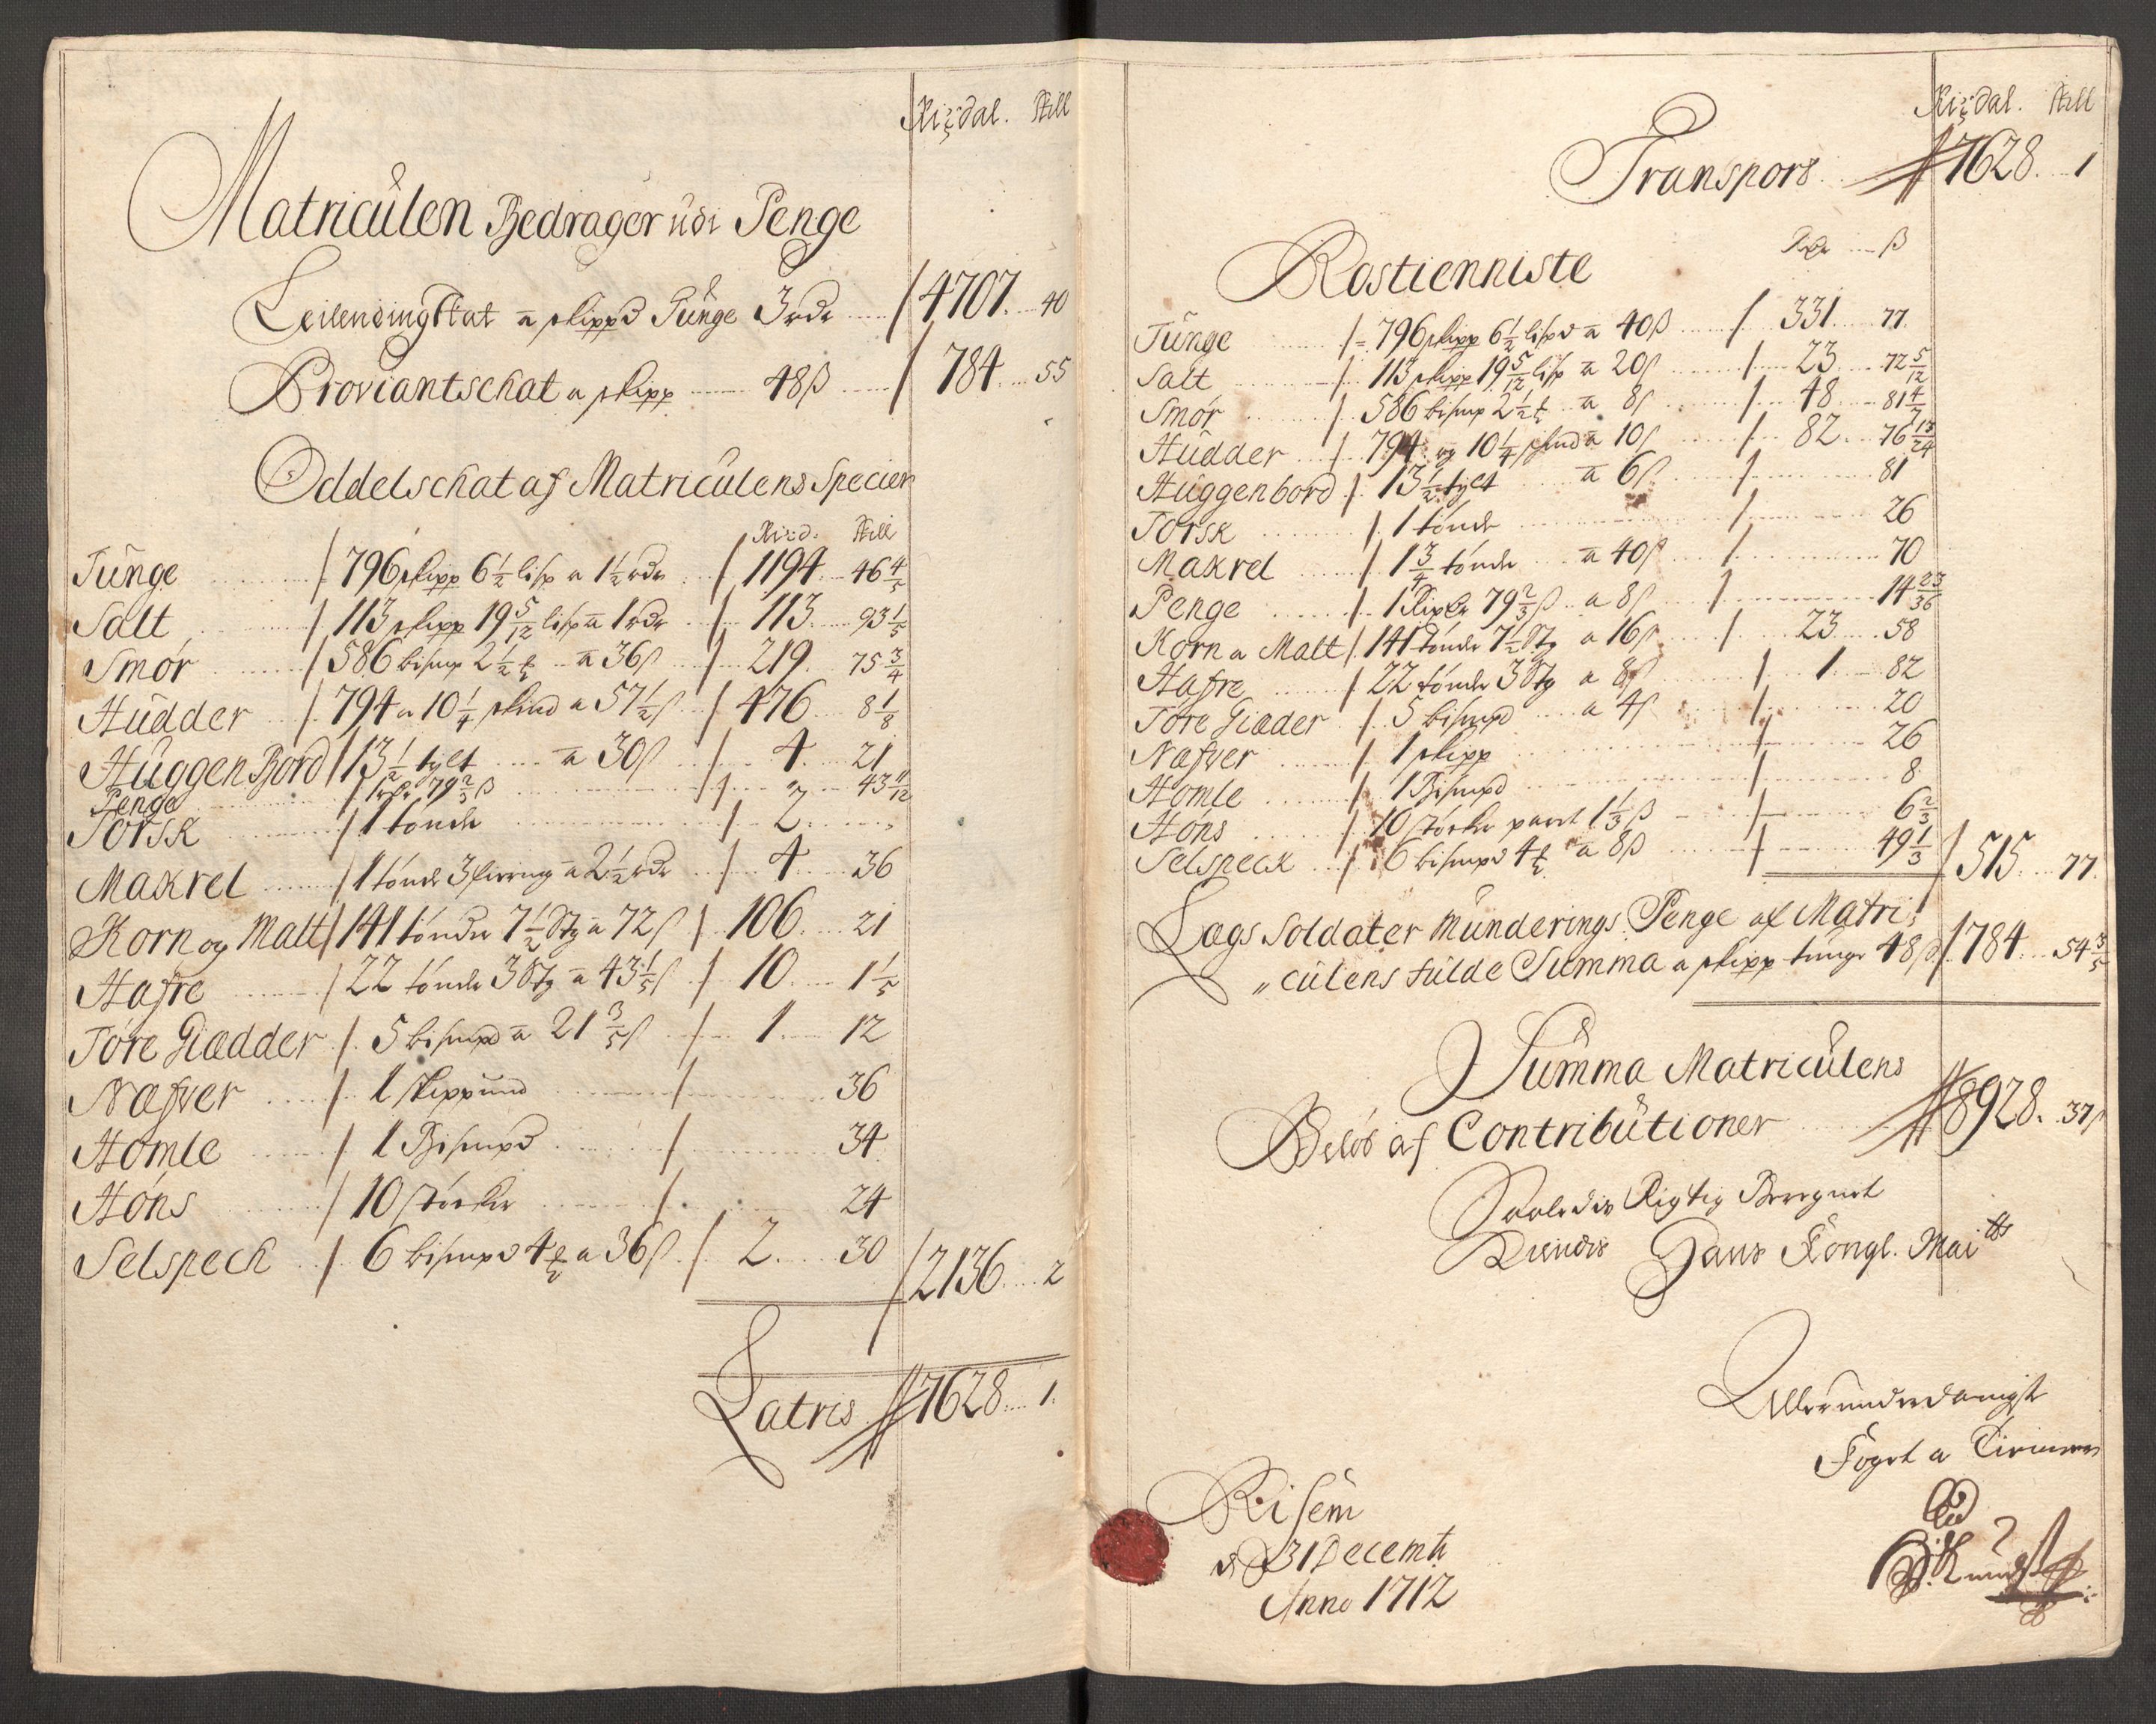 Rixdal. Skill
Matriculen Bedrager udi Penge
Leilendingskat a skippd Tunge 3 rdr 4707. 40
Proviantschat a skipp 48 ß 784. 55
Oddelschat af Matriculens Specier
Rixd. Skill
Tunge 796 skipp 6 1/2 lisp a 1 1/2 rdr 1194 46 4/5
Salt 113 skipp 19 5/12 lisp a 1 rdr 113. 93 1/5
Smór 586 bismp 2 1/2 ℔ a 36 ß 219. 75 3/4
Hudder 794 a 10 1/4 skind a 57 1/2 ß 476 8 1/8
Huggen Bord 13 1/2 tylt a 30 ß 4. 21
Penge 1 rdr 79 2/3 ß 2 43 11/12
Torsk 1 tónde 2.
Makrel 1 tónde 3 fierring a 2 1/2 rdr 4 36
Korn og Malt 141 tónder 7 1/2 Stg a 72 ß 106. 21
Hafre 22 tónde 3 Stg a 43 1/5 ß 10. 1 1/5
Tóre Giædder 5 bismpd a 21 3/5 ß 1 12
Næfver 1 Skippund 36
Homle 1 Bismpd 34
Hóns 10 Stócker 24
Selspeck 6 bismpd 4 ℔ a 36 ß 2. 30 2136. 2
Latris 7628. 1.
Rixdal. Skill
Transport 7628. 1
Rdr ß
Rostienniste
Tunge 796 skipp 6 1/2 lispd a 40 ß 331. 77.
Salt 113 skipp 19 5/12 lisp a 20 ß 23. 72 5/12
Smór 586 bismp 2 1/2 ℔ a 8 ß 48 81 4/7
Hudder 794 og 10 1/4 skind a 10 ß 82. 76 13/24
Huggenbord 13 1/2 tylt a 6 ß 81
Torsk 1 tónde 26
Makrel 1 3/4 tónde a 40 ß 70
Penge 1 Rixdr 79 2/3 ß a 8 ß 14 23/36
Korn a Malt 141 tónde 7 1/2 Stg a 16 ß 23. 58
Hafre 22 tónde 3 Stg a 8 ß 1 82
Tóre Giæder 5 bismpd a 4 ß 20
Næfver 1 skipp 26
Homle 1 Bismpd 8
Hóns 10 stócker paret 1 1/3 ß 6 2/3
Selspeck 6 bismpd 4 ℔ a 8 ß 49 1/3 515. 77.
Lægs Soldater Munderings Penge af Matri,
„culens fulde Summa a skipp tunge 48 ß 784. 54 3/5
Summa Matriculens
Belób af Contributioner 8928. 37 ß
Saaledis Rigtig Beregnet
Hans Kongl. Mai tts
Allerunderdanigste
Foget a Tienner
Risem
d 31 Decemb
Anno 1712